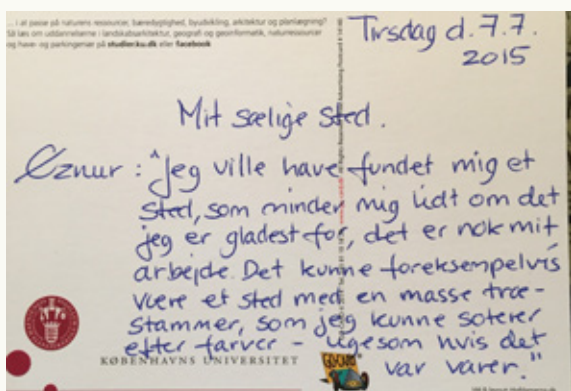 ... i at passe på naturens ressourcer, bæredygtighed, byudvikling, arkitektur og planlægning?
Så læs om uddannelserne i landskabsarkitektur, geografi og geoinformatik, naturressourcer
og have- og parkingeniør på studier.ku.dk eller facebook
Tirsdag d. 7.7.
2015
Mit sælige sted.
Öznur: "Jeg ville have fundet mig et
sted, som minder mig lidt om det
jeg er gladest for, det er nok mit
arbejde. Det kunne foreksempelvis
være et sted med en masse træ-
stammer, som jeg kunne soterer
efter farver - ligesom hvis det
var varer."
KØBENHAVNS UNIVERSITET
GO-CARD